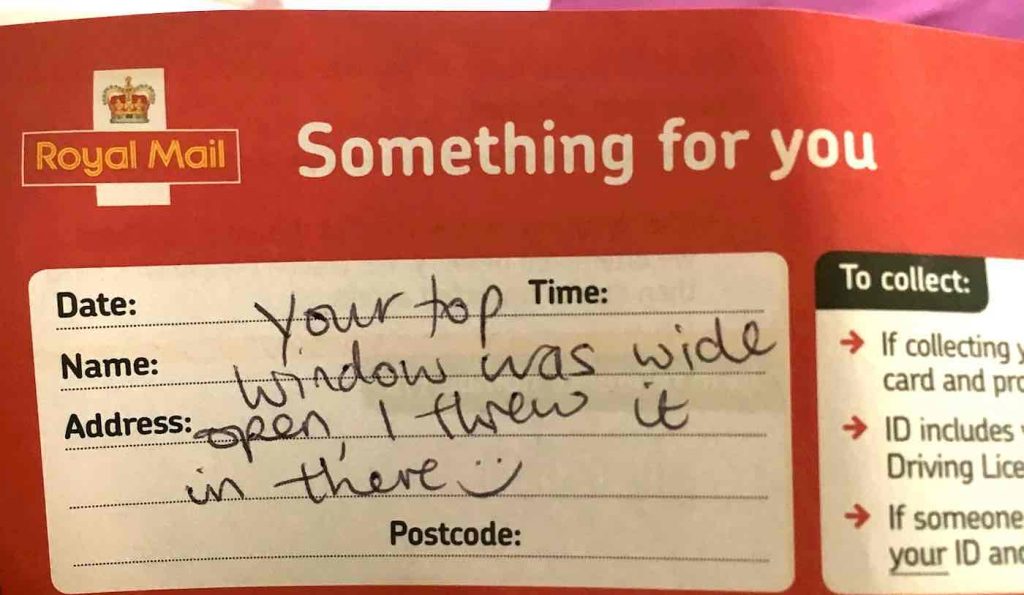 Royal Mail
Something for you
Date:
Time:
Name:
Address:
Your top
window was wide
open, I threw it
in there :)
Postcode:
To collect:
→ If collecting
card and
→ ID includes
Driving
→ If someone
your ID